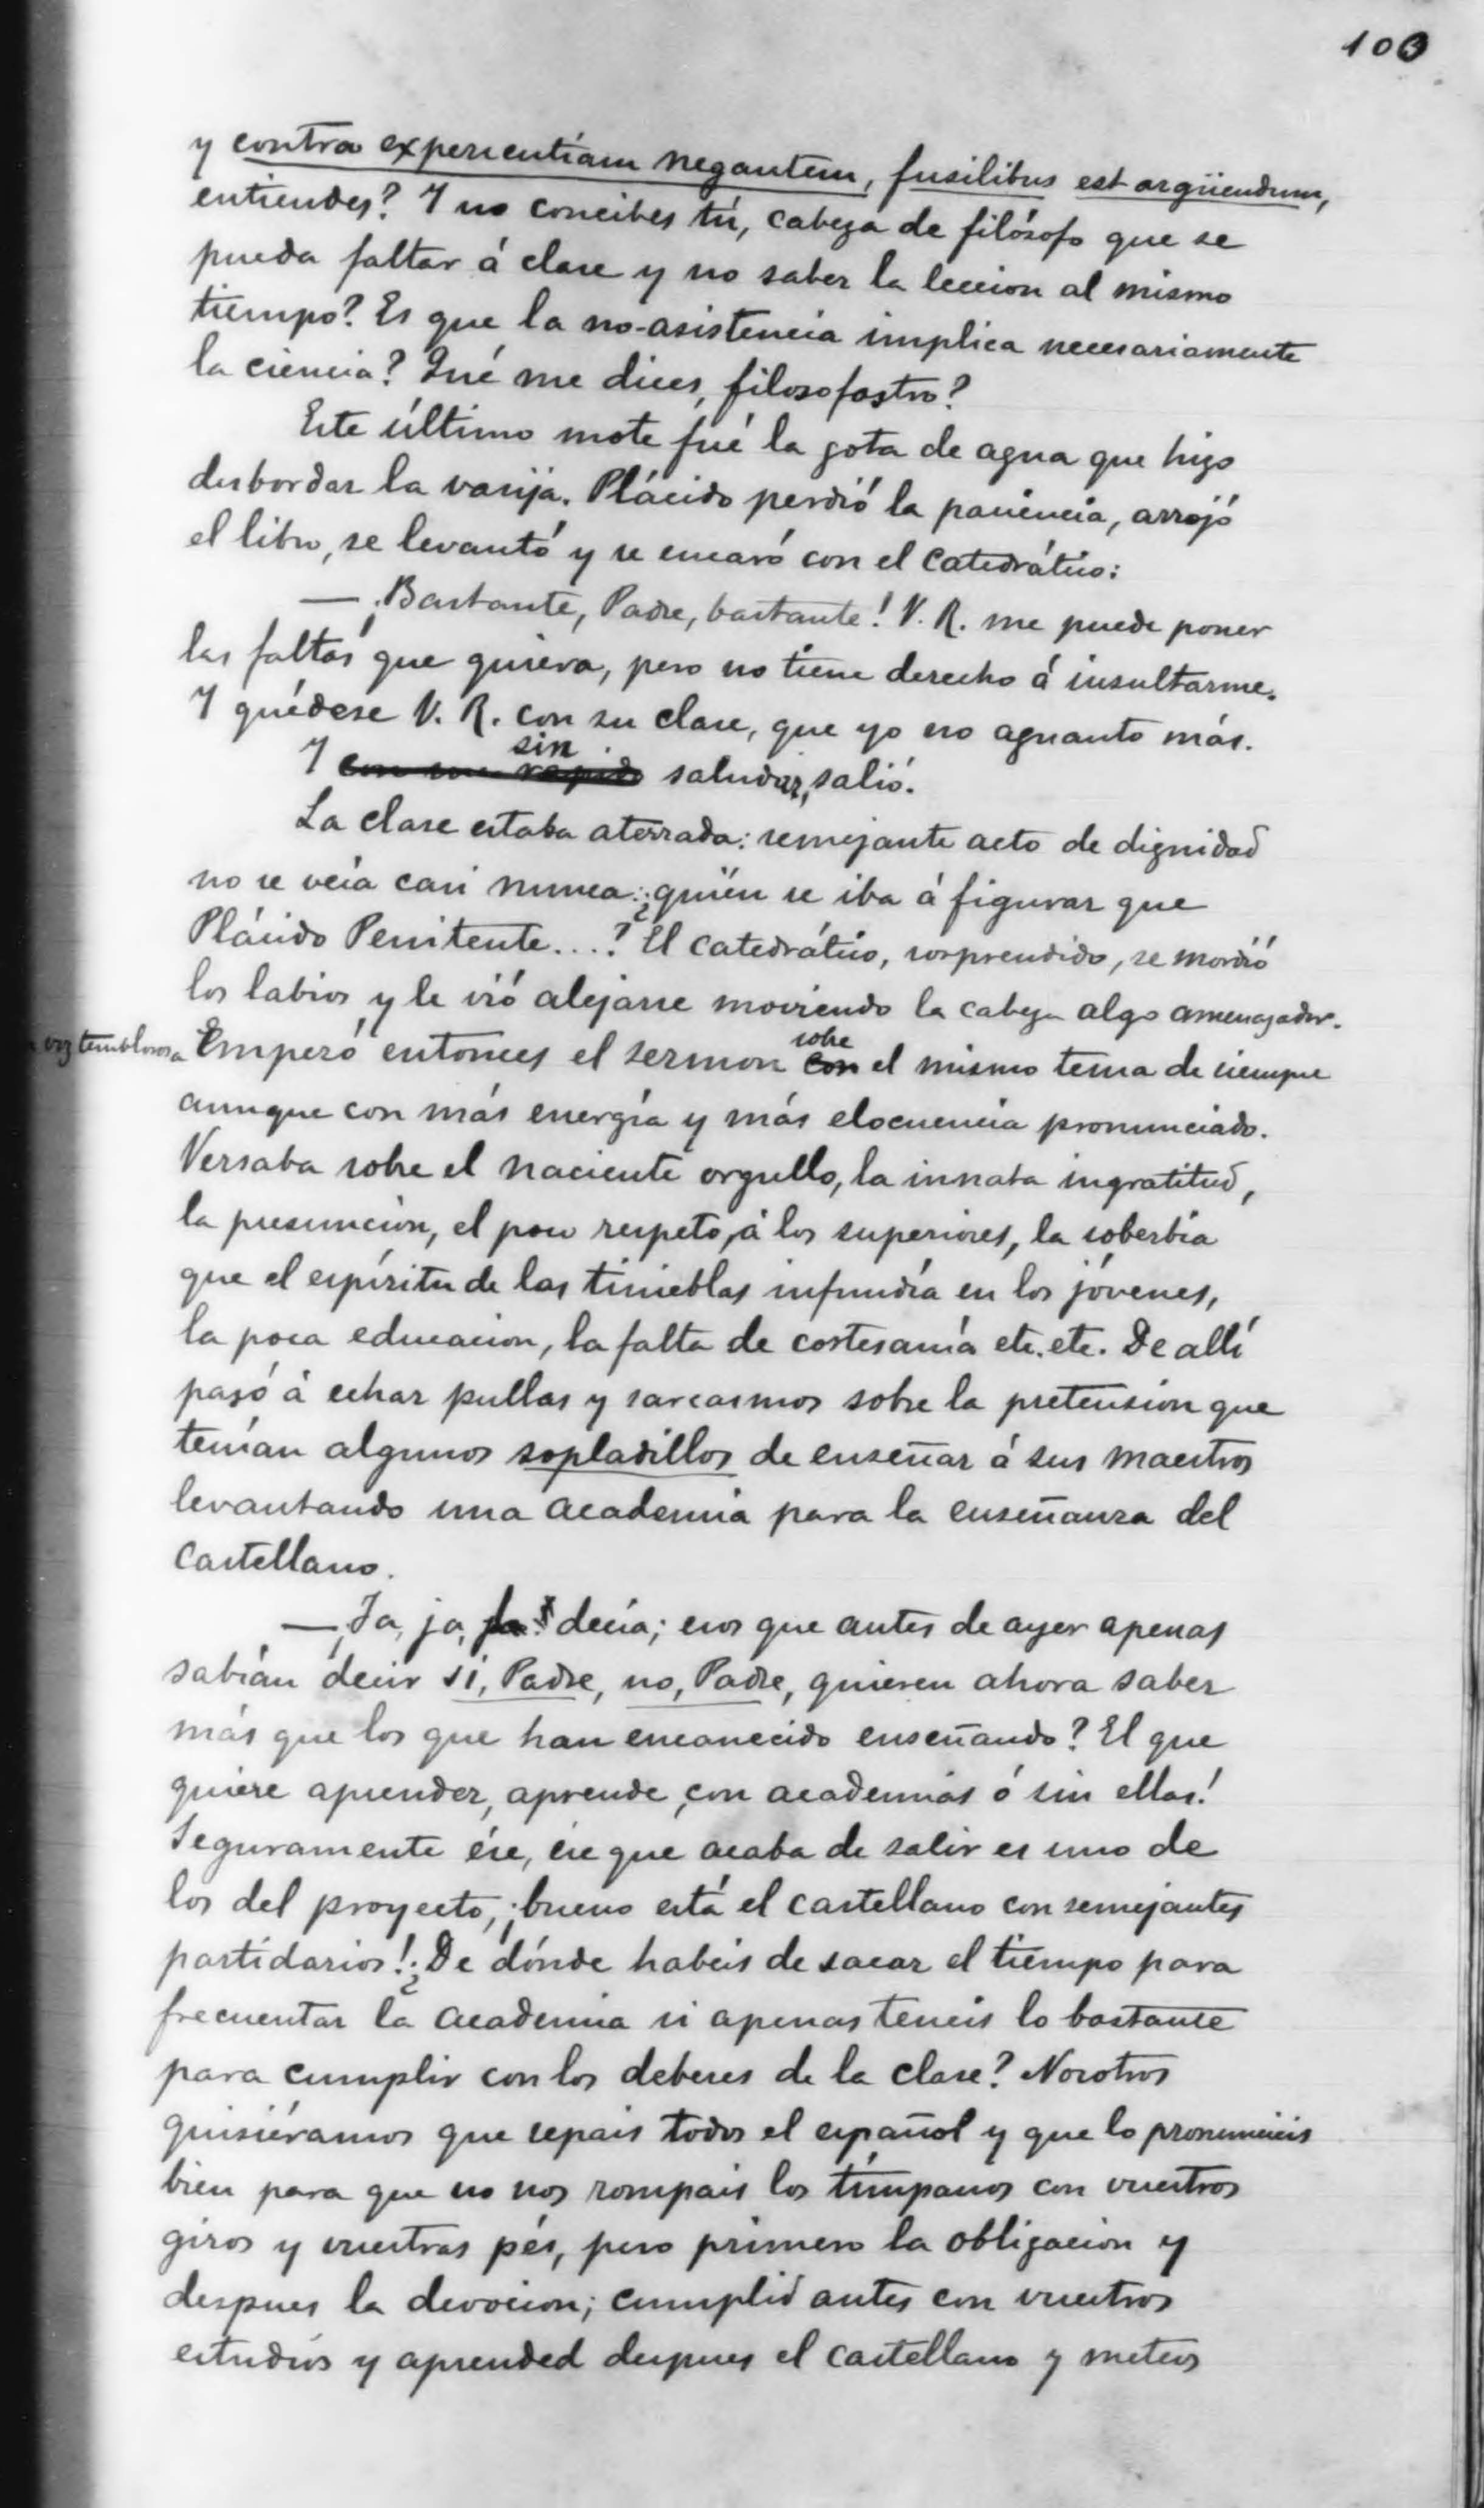 103
y contra experientiam negantem, fusilibus est argüendum,
entiendes? Y no concibes tú, cabeza de filósofo que se
pueda faltar á clase y no saber la leccion al mismo
tiempo? Es que la no-asistencia implica necesariamente
la ciencia? Qué me dices, filosofastro?
Este último mote fué la gota de agua que hizo
desbordar la vasija. Plácido perdió la paciencia, arrojó
el libro, se levantó y se encaró con el catedrático:
— ¡Bastante, Padre, bastante! V. R. me puede poner
las faltas que quiera, pero no tiene derecho á insultarme.
Y quédese V. R. con su clase, que yo no aguanto más.
sin
Y con un rápido saludar, salió.
La clase estaba aterrada: semejante acto de dignidad
no se veía casi nunca: ¿quién se iba á figurar que
Plácido Penitente....? El catedrático, sorprendido, se mordió
los labios y le vió alejarse moviendo la cabeza algo amenazador.
voz temblorosa Emperó entonces el sermon con el mismo tema de siempre
sobre
aunque con más energía y más elocuencia pronunciado.
Versaba sobre el naciente orgullo, la innata ingratitud,
la presuncion, el poco respeto á los superiores, la soberbia
que el espíritu de las tinieblas infundía en los jóvenes,
la poca educacion, la falta de cortesanía etc. etc. De allí
pasó á echar pullas y sarcasmos sobre la pretension que
tenían algunos sopladillos de enseñar á sus maestros
levantando una academia para la enseñanza del
castellano.
— ¡Ja, ja, ja! decía; esos que antes de ayer apenas
sabían decir sí, Padre, no, Padre, quieren ahora saber
más que los que han encanecido enseñando? El que
quiere aprender, aprende, con academias ó sin ellas!
Seguramente ése, ése que acaba de salir es uno de
los del proyecto, ¡bueno está el castellano con semejantes
partidarios! ¿De dónde habeis de sacar el tiempo para
frecuentar la academia si apenas teneis lo bastante
para cumplir con los deberes de la clase? Nosotros
quisiéramos que sepais todos el español y que lo pronuncieis
bien para que no nos rompais los tímpanos con vuestros
giros y vuestras pés, pero primero la obligacion y
despues la devocion; cumplid antes con vuestros
estudios y aprended despues el castellano y meteos